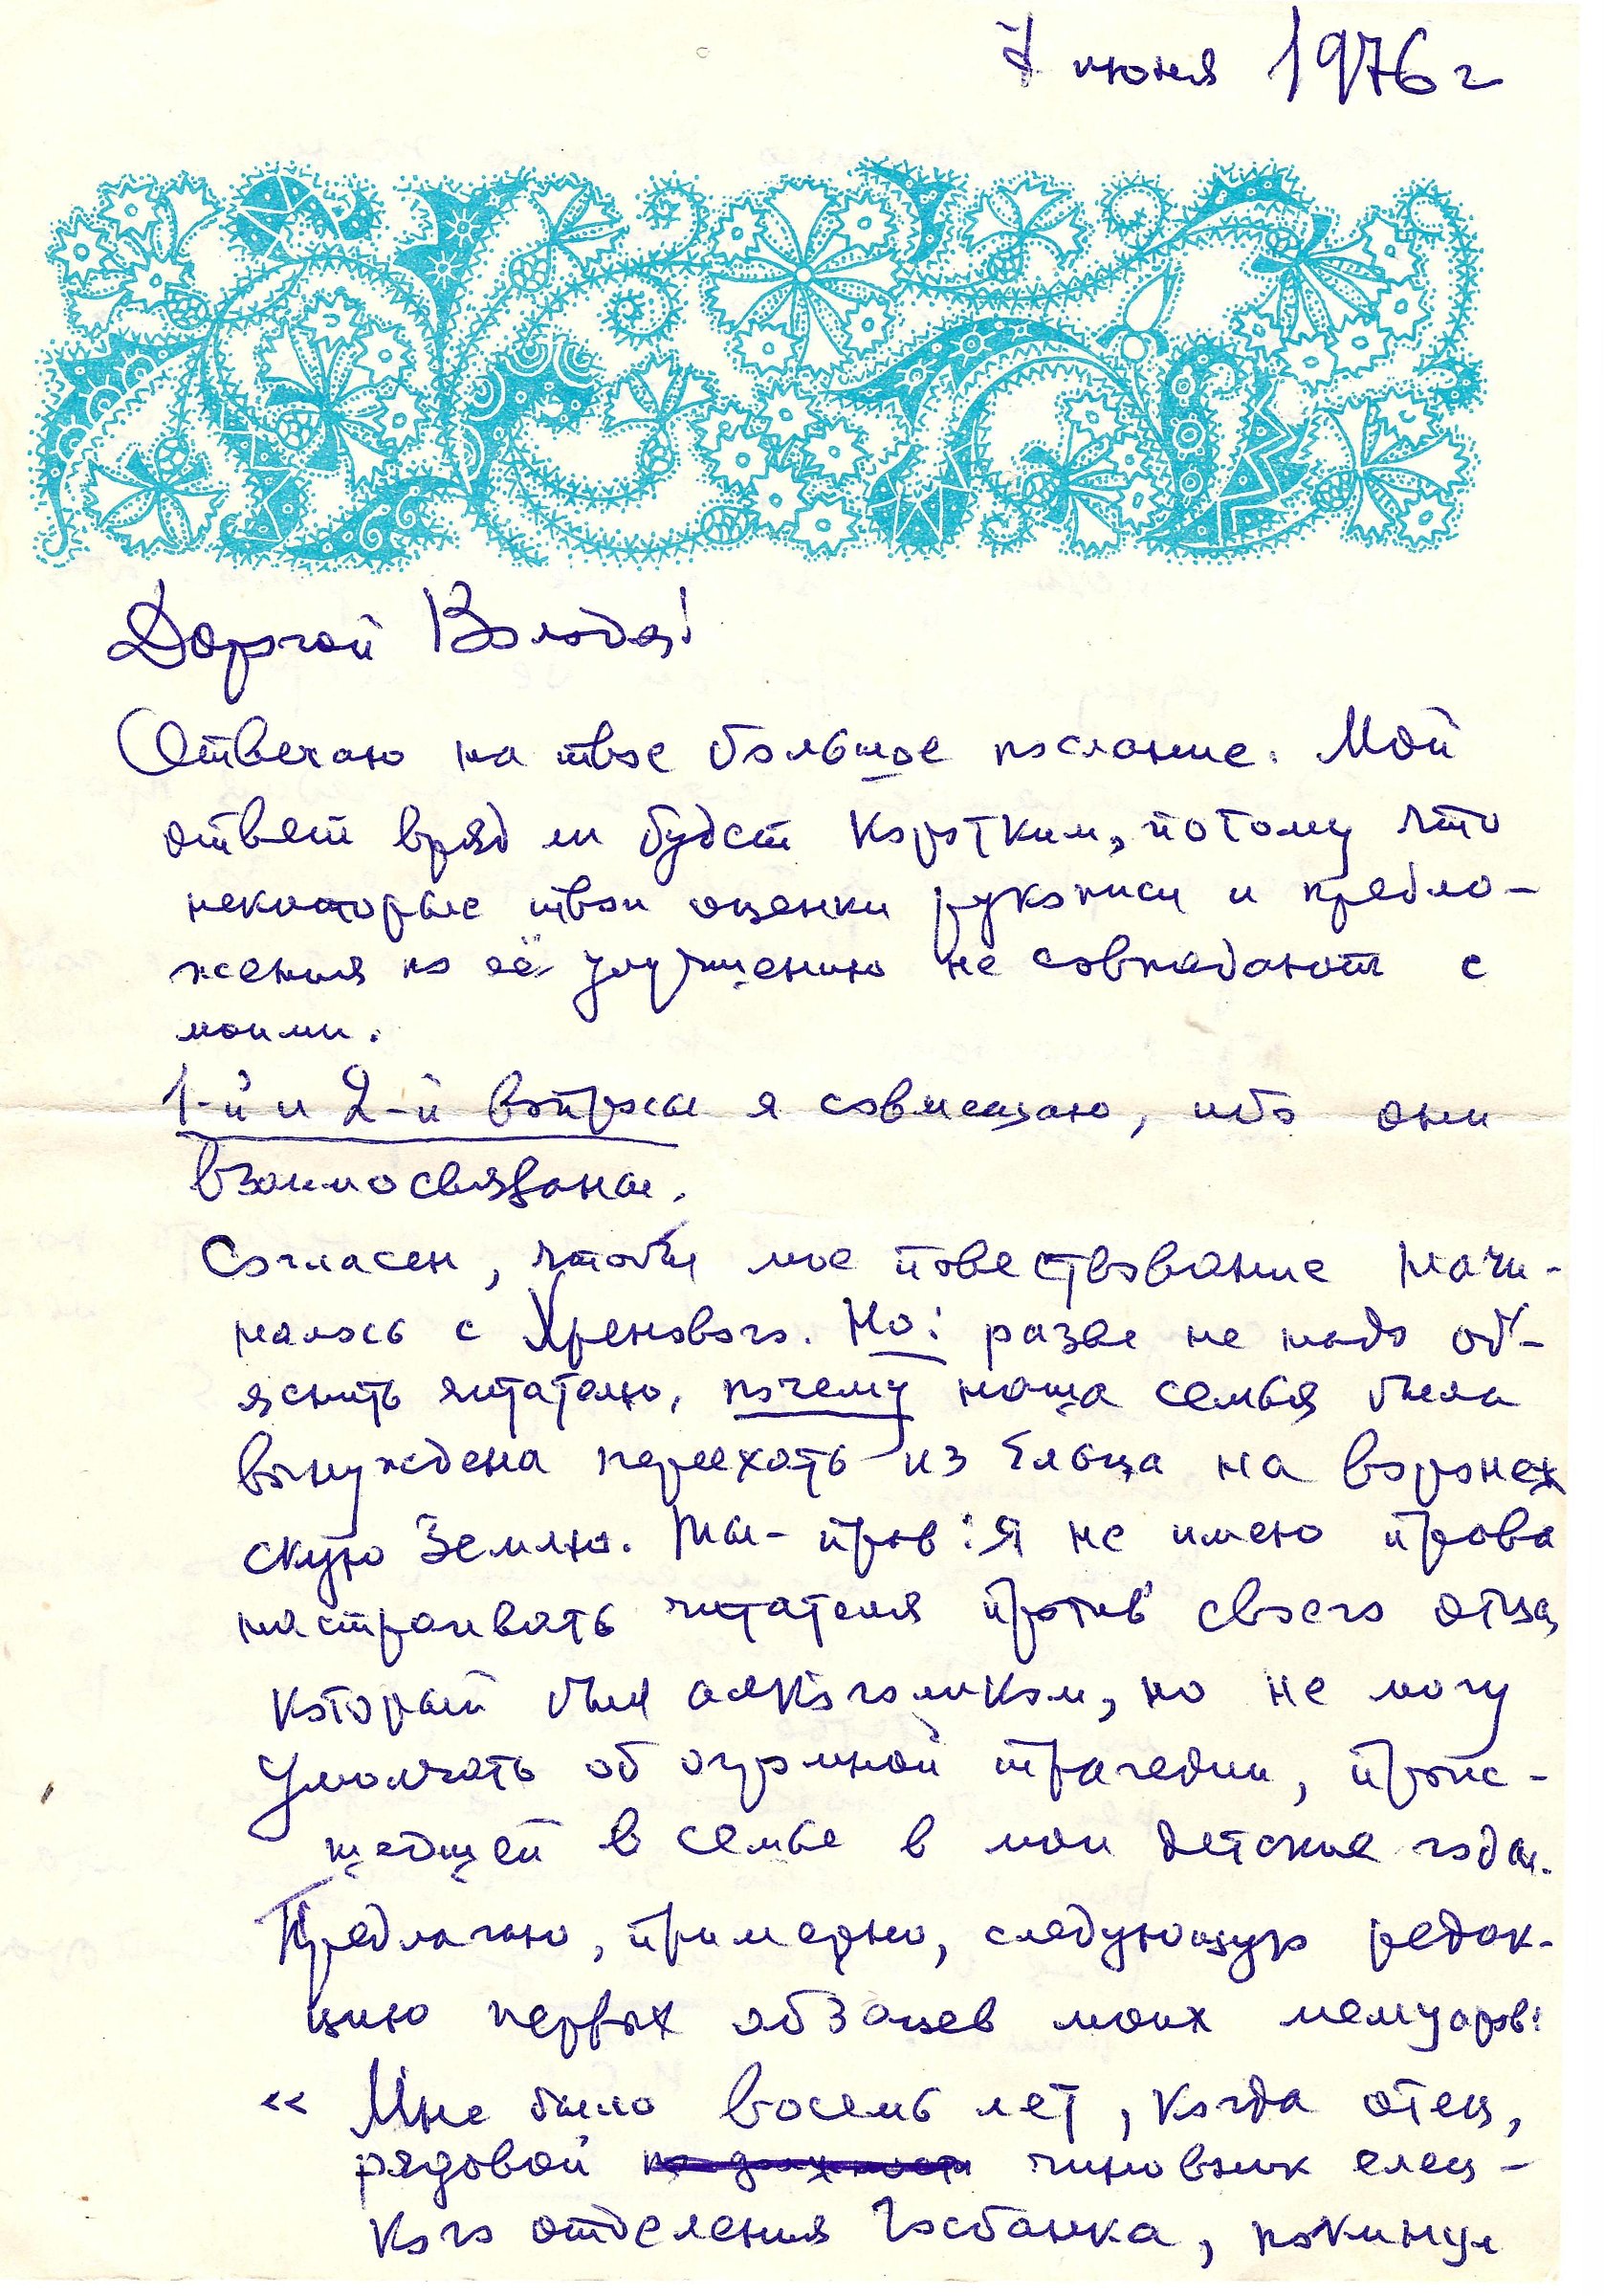 7 июня 1976 г
Дорогой Володя!
Отвечаю на твое большое послание. Мой
ответ вряд ли будет коротким, потому что
некоторые твои оценки рукописи и предло-
жения по её улучшению не совпадают с
моими.
1-й и 2-й вопросы я совмещаю, ибо они
взаимосвязаны.
Согласен, чтобы мое повествование начи-
налось с Хренового. Но: разве не надо об'-
яснить читателю, почему наша семья была
вынуждена переехать из Ельца на воронеж
скую землю. Ты - прав: Я не имею права
настраивать читателя против своего отца
который был алкоголиком, но не могу
умолчать об огромной трагедии, проис-
шедшей в семье в мои детские годы.
Предлагаю, примерно, следующую редак-
цию первых абзацев моих мемуаров:
« Мне было восемь лет, когда отец,
рядовой по должности чиновник елец-
кого отделения Госбанка, покинул